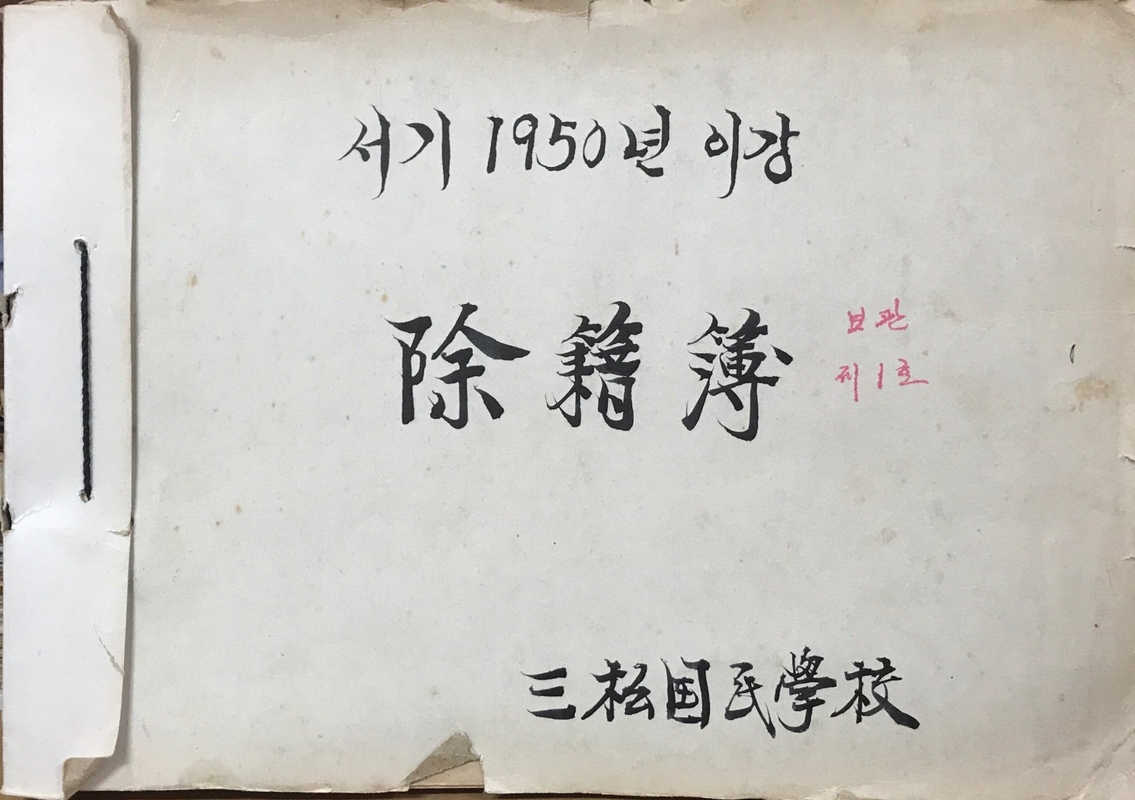 서기 1950년 이강
除籍簿
보관
제1호
三松国民學校